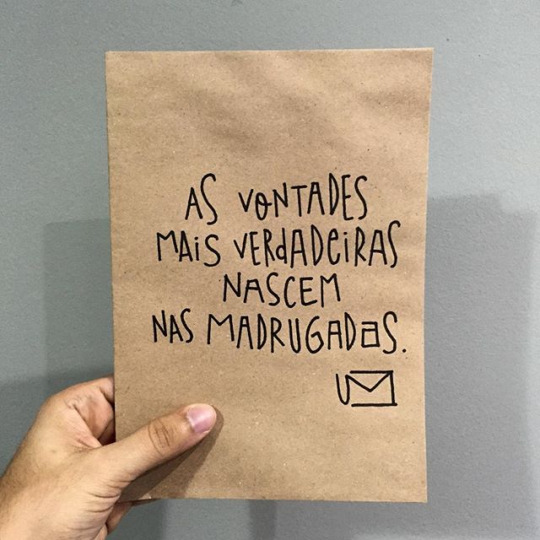 AS VONTADES
MAIS VERdADEiRAS
NASCEM
NAS MADRUGADAS.